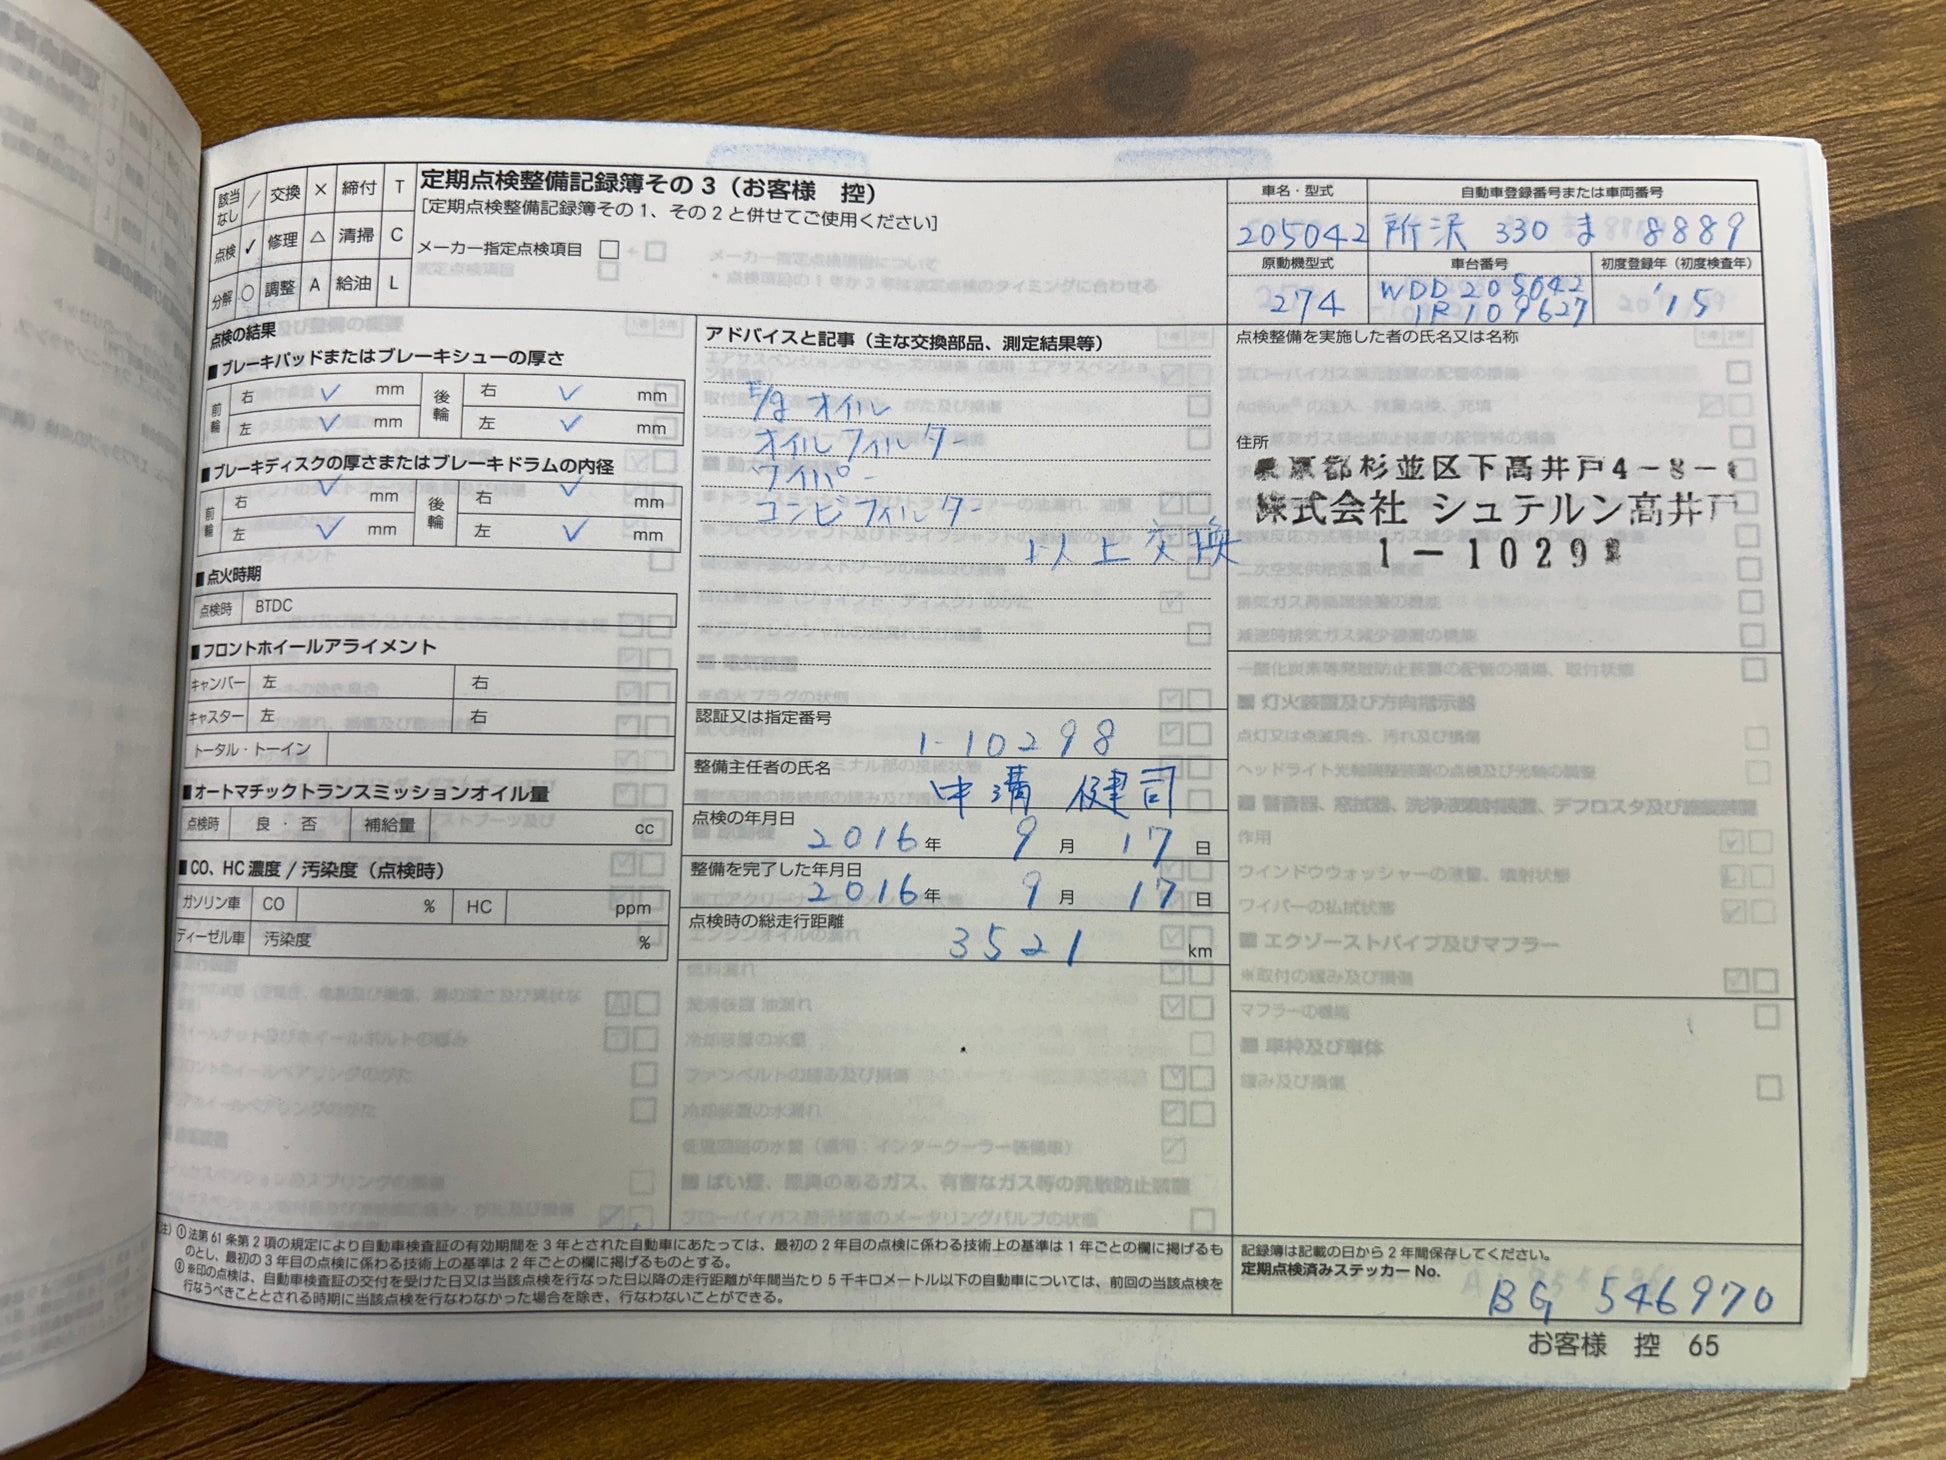 該当なし ／ 交換 × 締付 T
点検 ✓ 修理 △ 清掃 C
分解 ○ 調整 A 給油 L
定期点検整備記録簿その3（お客様　控）
［定期点検整備記録簿その1、その2と併せてご使用ください］
メーカー指定点検項目 □
車名・型式
205042
自動車登録番号または車両番号
所沢 330 ま 8889
原動機型式
274
車台番号
WDD205042
1R109627
初度登録年（初度検査年）
'15
点検の結果
■ブレーキパッドまたはブレーキシューの厚さ
前輪 右 ✓ mm 後輪 右 ✓ mm
左 ✓ mm 左 ✓ mm
■ブレーキディスクの厚さまたはブレーキドラムの内径
前輪 右 ✓ mm 後輪 右 ✓ mm
左 ✓ mm 左 ✓ mm
■点火時期
点検時 BTDC
■フロントホイールアライメント
キャンバー 左 右
キャスター 左 右
トータル・トーイン
■オートマチックトランスミッションオイル量
点検時 良・否 補給量 cc
■CO、HC濃度/汚染度（点検時）
ガソリン車 CO % HC ppm
ディーゼル車 汚染度 %
アドバイスと記事（主な交換部品、測定結果等）
E/g オイル
オイルフィルター
ワイパー
コンビフィルター
以上交換
認証又は指定番号
1-10298
整備主任者の氏名
中溝 健司
点検の年月日
2016年 9月 17日
整備を完了した年月日
2016年 9月 17日
点検時の総走行距離
3521 km
点検整備を実施した者の氏名又は名称
住所
東京都杉並区下高井戸4-8-
株式会社 シュテルン高井戸
1-1029
注）①法第61条第2項の規定により自動車検査証の有効期間を3年とされた自動車にあたっては、最初の2年目の点検に係わる技術上の基準は1年ごとの欄に掲げるも
のとし、最初の3年目の点検に係わる技術上の基準は2年ごとの欄に掲げるものとする。
②※印の点検は、自動車検査証の交付を受けた日又は当該点検を行なった日以降の走行距離が年間当たり5千キロメートル以下の自動車については、前回の当該点検を
行なうべきこととされる時期に当該点検を行なわなかった場合を除き、行なわないことができる。
記録簿は記載の日から2年間保存してください。
定期点検済みステッカーNo.
BG 546970
お客様　控　65